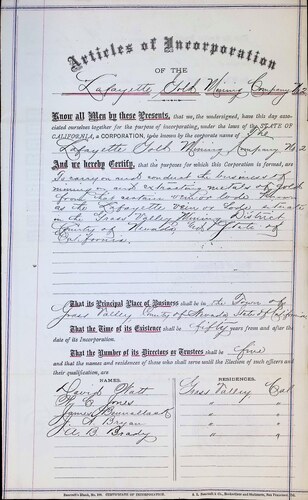 Articles of Incorporation
OF THE
Lafayette Gold Mining Company No 2
Know all Men by these Presents, that we, the undersigned, have this day asso-
ciated ourselves together for the purpose of incorporating, under the laws of the STATE OF
CALIFORNIA, a CORPORATION, to be known by the corporate name of The
Lafayette Gold Mining Company No 2
And we hereby Certify, that the purposes for which this Corporation is formed, are
To carry on and conduct the business of
mining and extracting metals of gold
from certain vein or lode known
as the Lafayette vein or lode situate
in the Grass Valley Mining District
County of Nevada and State of
California
That its Principal Place of Business shall be in the Town of
Grass Valley County of Nevada State of California
That the Time of its Existence shall be fifty years from and after
the date of its Incorporation.
That the Number of its Directors or Trustees shall be five
and that the names and residences of those who shall serve until the Election of such officers and
their qualification, are
NAMES. RESIDENCES.
David Watt Grass Valley Cal
Jones
James
Bryan
B. Brady
CERTIFICATE OF INCORPORATION.